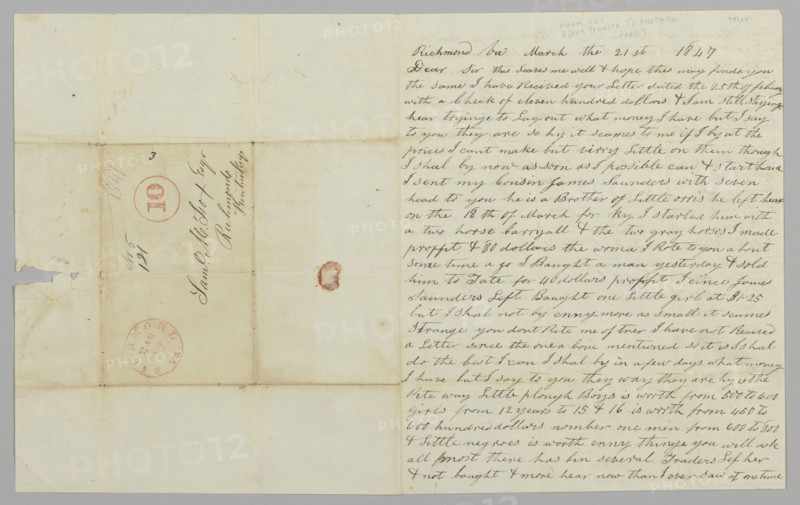 Richmond Va March the 21st 1847
Dear Sir this leaves me well & hope this may finde you
the same I have Received your Letter dated the 25th of
with a Check of eleven hundred dollars & I am still staying
hear tryinge to Lay out what money I have but I say
to you they are so hy it seames to me if I by at the
prices I cant make but verry Little on them though
I shal by now as soon as I possible can & start home
I sent my Cousin James Saunders with seven
head to you he is a Brother of Little he left hear
on the 18th of March for Ky I started him with
a two horse Carryall & the two gray horses I made
proffit & 80 dollars the woman I Rote to you a bout
some time a go I Baught a man yesterday & sold
him to Tate for 40 dollars proffit Since James
Saunders Left Baught one Little girl at
but I shal not by enny more as small it seames
Strange you dont Rete me oftner I have not Receved
a Letter since the one a bove mentioned so it is I shal
do the best I can I shal by in a few days what money
I have but I say to you they way they are hy is the
Rite way Little plough Boys is worth from 500 to 600
girls from 12 years to 15 & 16 is worth from 450 to
600 hundred dollars number one men from 600 to 800
& Little negroes is worth enny thinge you will ask
all most there has bin several Traders Lef her
& not baught & more hear now than I ever saw at one time
1847
3
10
No 5
121
Saml R. McFox Esqr
Richmond
Kentucky
RICHMOND Va
MAR
PHOTO12